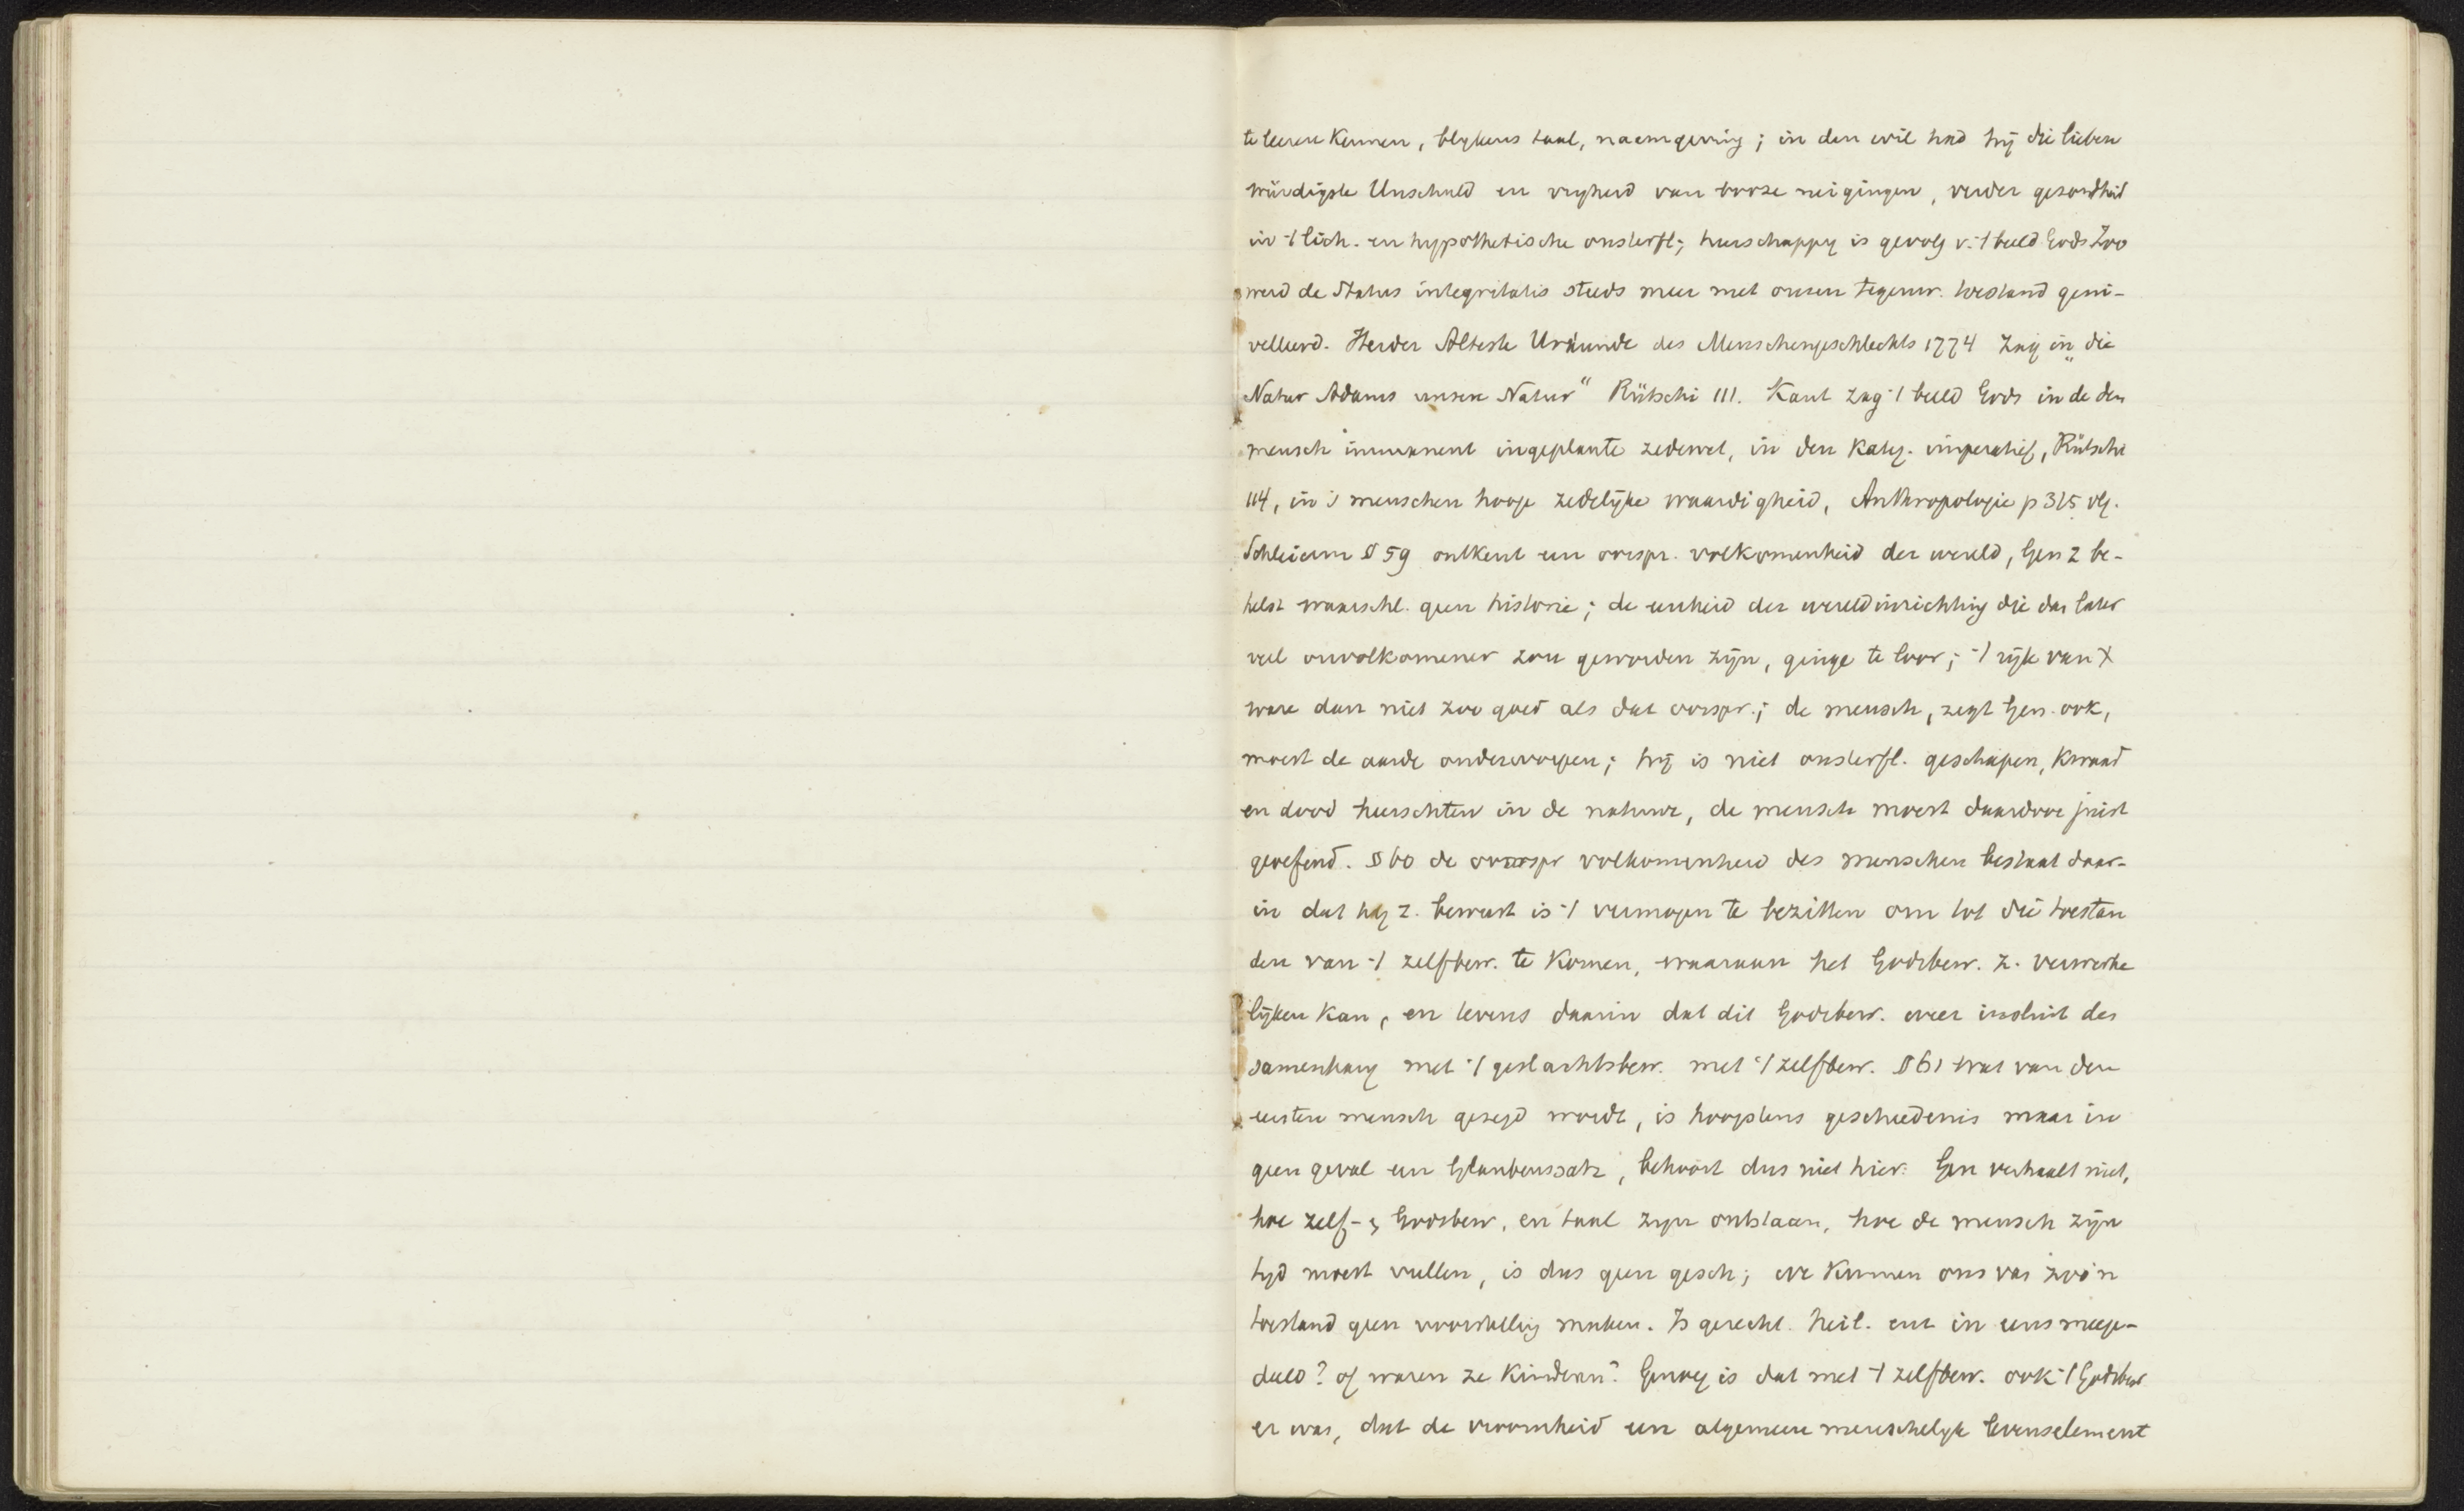 te leeren kennen, blykens taal, naamgeving; in den wil had hij die lieben
würdigste Unschuld en vryheid van booze neigingen, verder gezondheid
in 't lich. en hypothetische onsterfl; heerschappy is gevolg v. 't beeld Gods Zoo
werd de Status integritatis steeds meer met onzen tegenw. toestand geni-
velleerd. Herder Alteste Urkunde des Menschengeschlechts 1774 zag in "die
Natur Adams unsere Natur" Rütschi 111. Kant zag 't beeld Gods in de den
mensch immanent ingeplante zedewet, in den Kateg. imperatief, Rütschi
114, in 's menschen hooge zedelijke waardigheid, Anthropologie p 315 vlg.
Schleierm § 59 ontkent een oorspr. volkomenheid der wereld, Gen 2 be-
helst waarschl. geen historie; de eenheid der wereldinrichting die dan later
veel onvolkomener zou geworden zijn, ginge te loor; 't rijk van X
ware dan niet zoo goed als dat oorspr.; de mensch, zegt Gen. ook,
moest de aarde onderwerpen; hij is niet onsterfl. geschapen, kwaad
en dood heerschten in de natuur, de mensch moest daardoor juist
geoefend. § 60 de oorspr volkomenheid des menschen bestaat daar-
in dat hy z. bewust is 't vermogen te bezitten om tot die toestan
den van 't zelfbew. te komen, waaraan het Godsbew. z. verwerke
lijken kan, en tevens daarin dat dit Godsbew. weer insluit des
samenhang met 't geslachtsbew. met 't zelfbew. § 61 wat van den
eersten mensch gezegd wordt, is hoogstens geschiedenis maar in
geen geval een Glaubenssatz, behoort dus niet hier. Gen verhaalt niet,
hoe zelf- & Godsbew, en taal zyn ontstaan, hoe de mensch zijn
tyd moest vullen, is dus geen gesch; we kunnen ons van zoo'n
toestand geen voorstelling maken. Is gerecht. heil. enz in eens meege-
deeld? of waren ze kinderen? Genoeg is dat met 't zelfbew. ook 't Godsbew
er was, dat de vroomheid een algemeen menschelyk levenselement